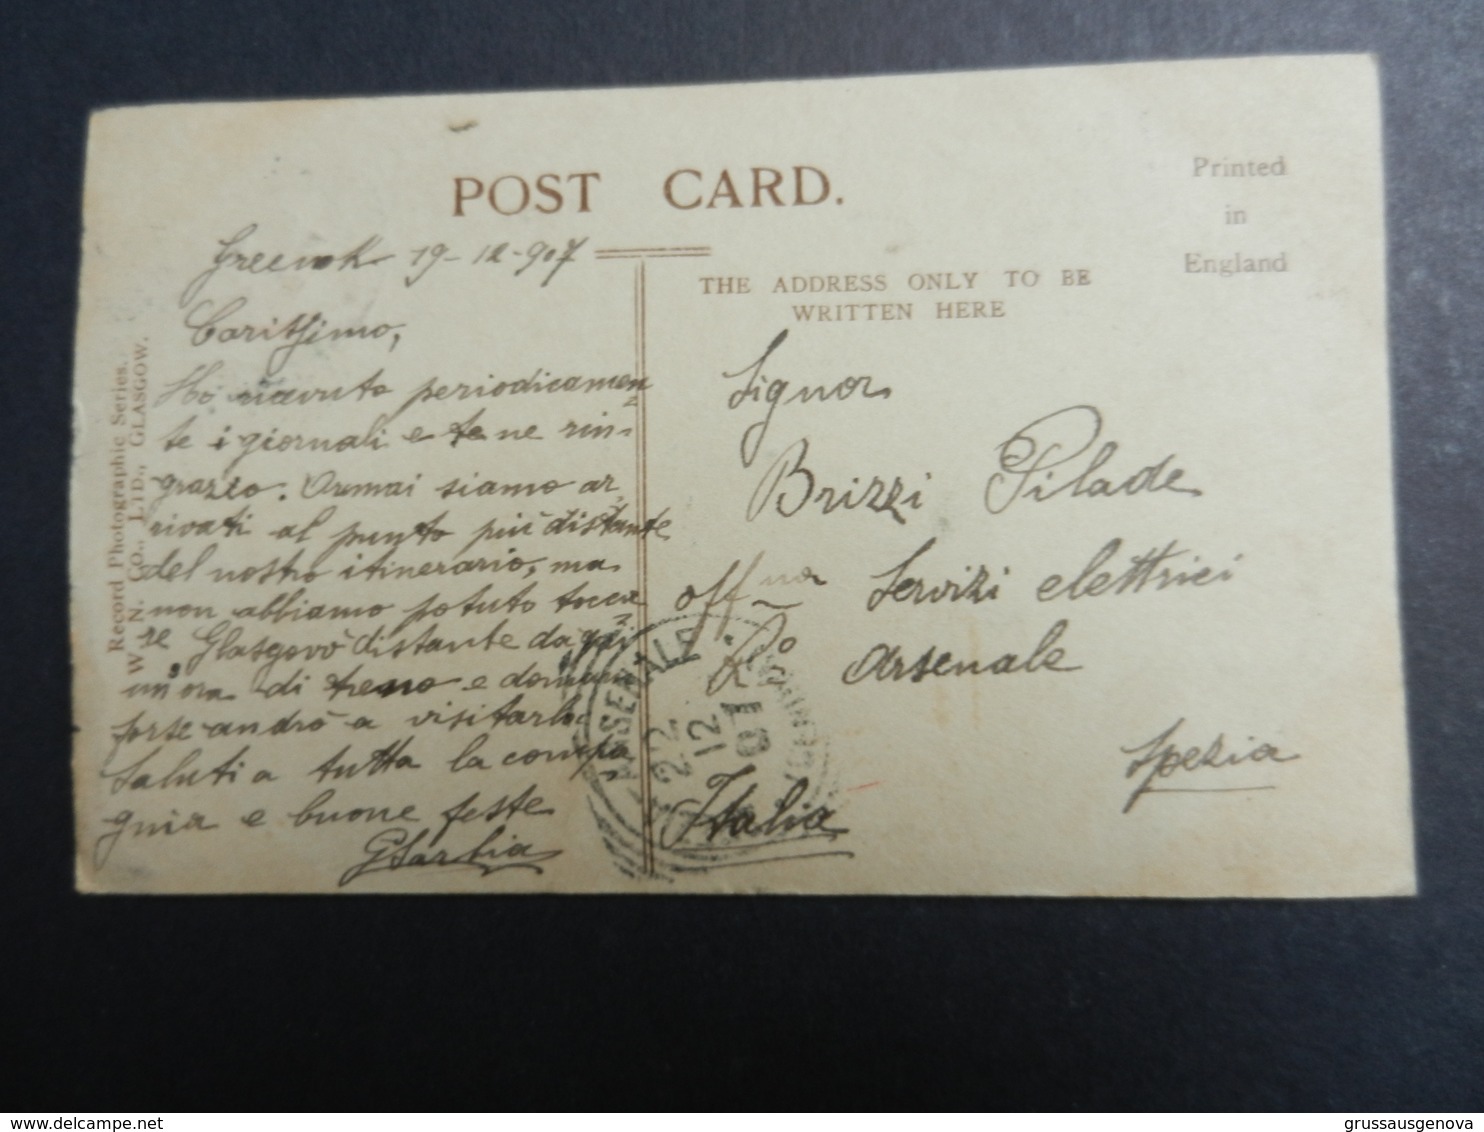 POST CARD.
Printed
in
England
THE ADDRESS ONLY TO BE
WRITTEN HERE
Record Photographic Series.
W. N. CO., LTD., GLASGOW.
Greenok 19-12-907
Carissimo,
Ho ricevuto periodicamen
te i giornali e te ne rin-
grazio. Ormai siamo ar-
rivati al punto più distante
del nostro itinerario, ma
non abbiamo potuto tocca
re Glasgovò distante da qui
un'ora di treno e domani
forse andrò a visitarla.
Saluti a tutta la compa
gnia e buone feste
Signor
Brizzi Pilade
offna Servizi elettrici
Ro Arsenale
Spezia
Italia
ARSENALE
22
12
07
grussausgenova
delcampe.net